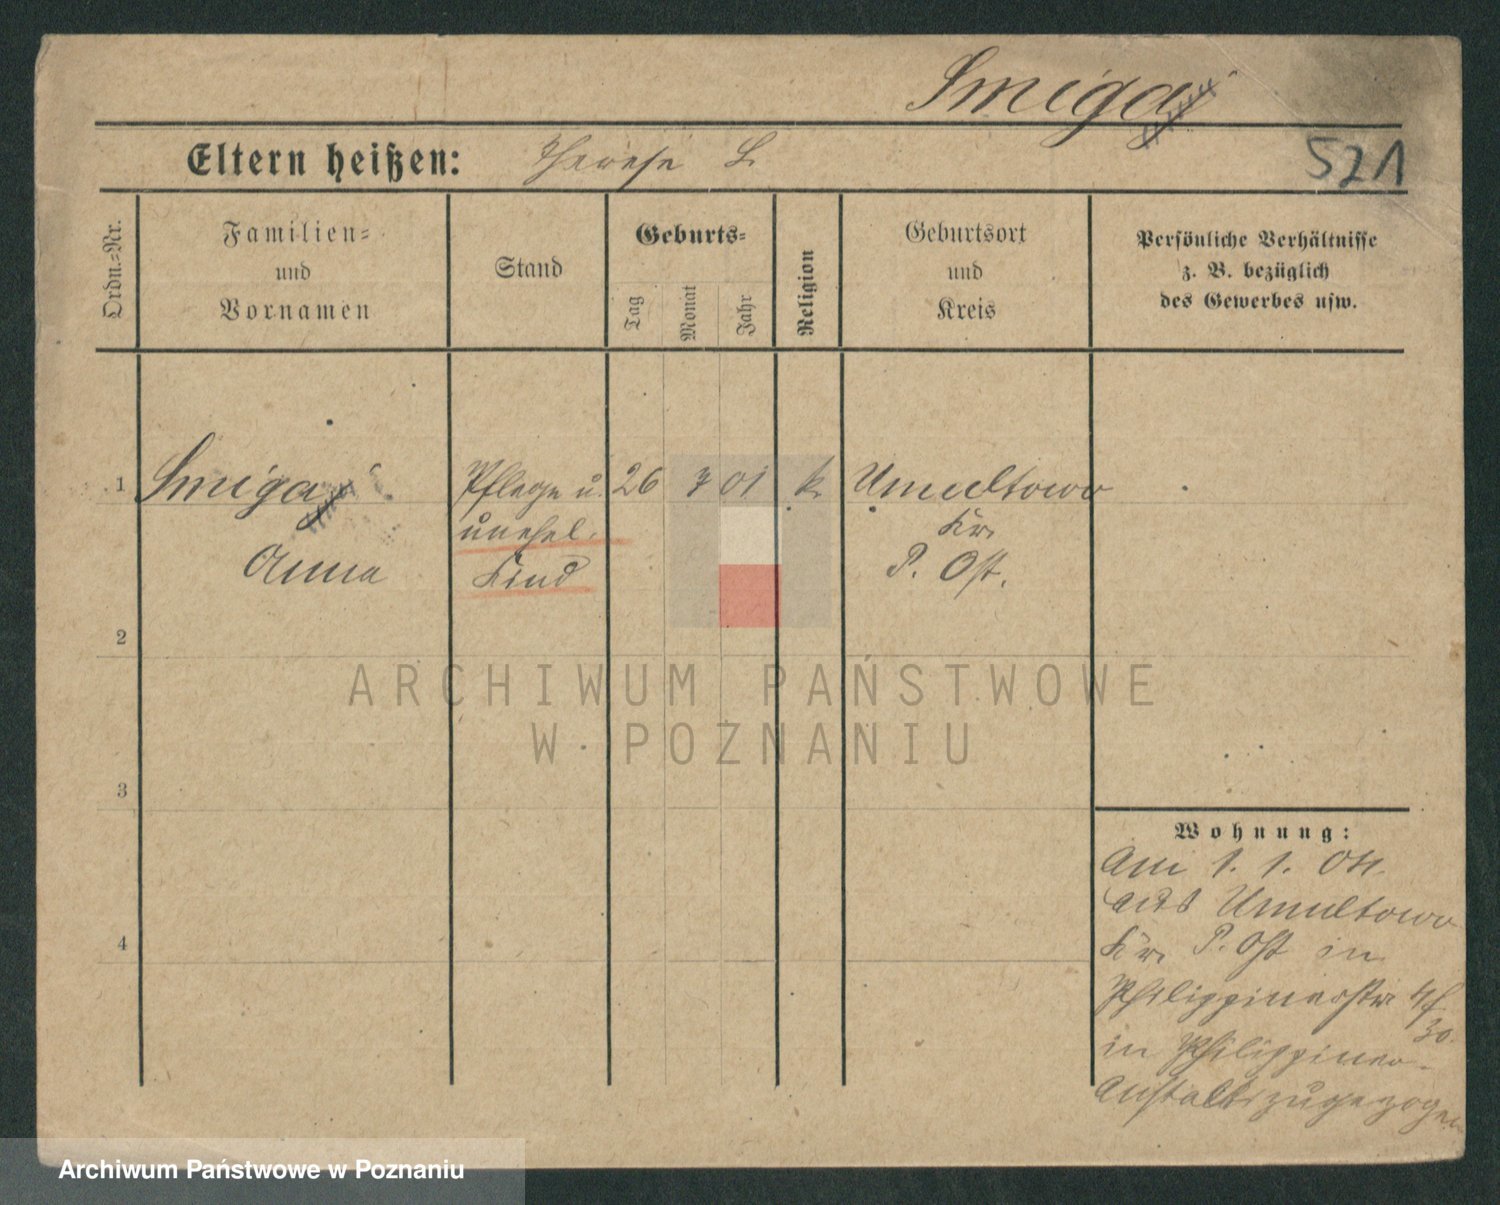 Smigaj
Eltern heißen: Therese S.
521
Ordn.-Nr.
Familien-
und
Vornamen
Stand
Geburts-
Tag
Monat
Jahr
Religion
Geburtsort
und
Kreis
Persönliche Verhältnisse
z. B. bezüglich
des Gewerbes usw.
1 Smigaj Pflege u. 26 7 01 k. Umultowo
unehel. Kr.
Anna Kind P. Ost.
2
3
4
Wohnung:
Am 1. 1. 04.
aus Umultowo
Kr. P. Ost in
Philippinerstr
30.
in Philippiner-
Anstalt zugezogen
ARCHIWUM PAŃSTWOWE
W POZNANIU
Archiwum Państwowe w Poznaniu